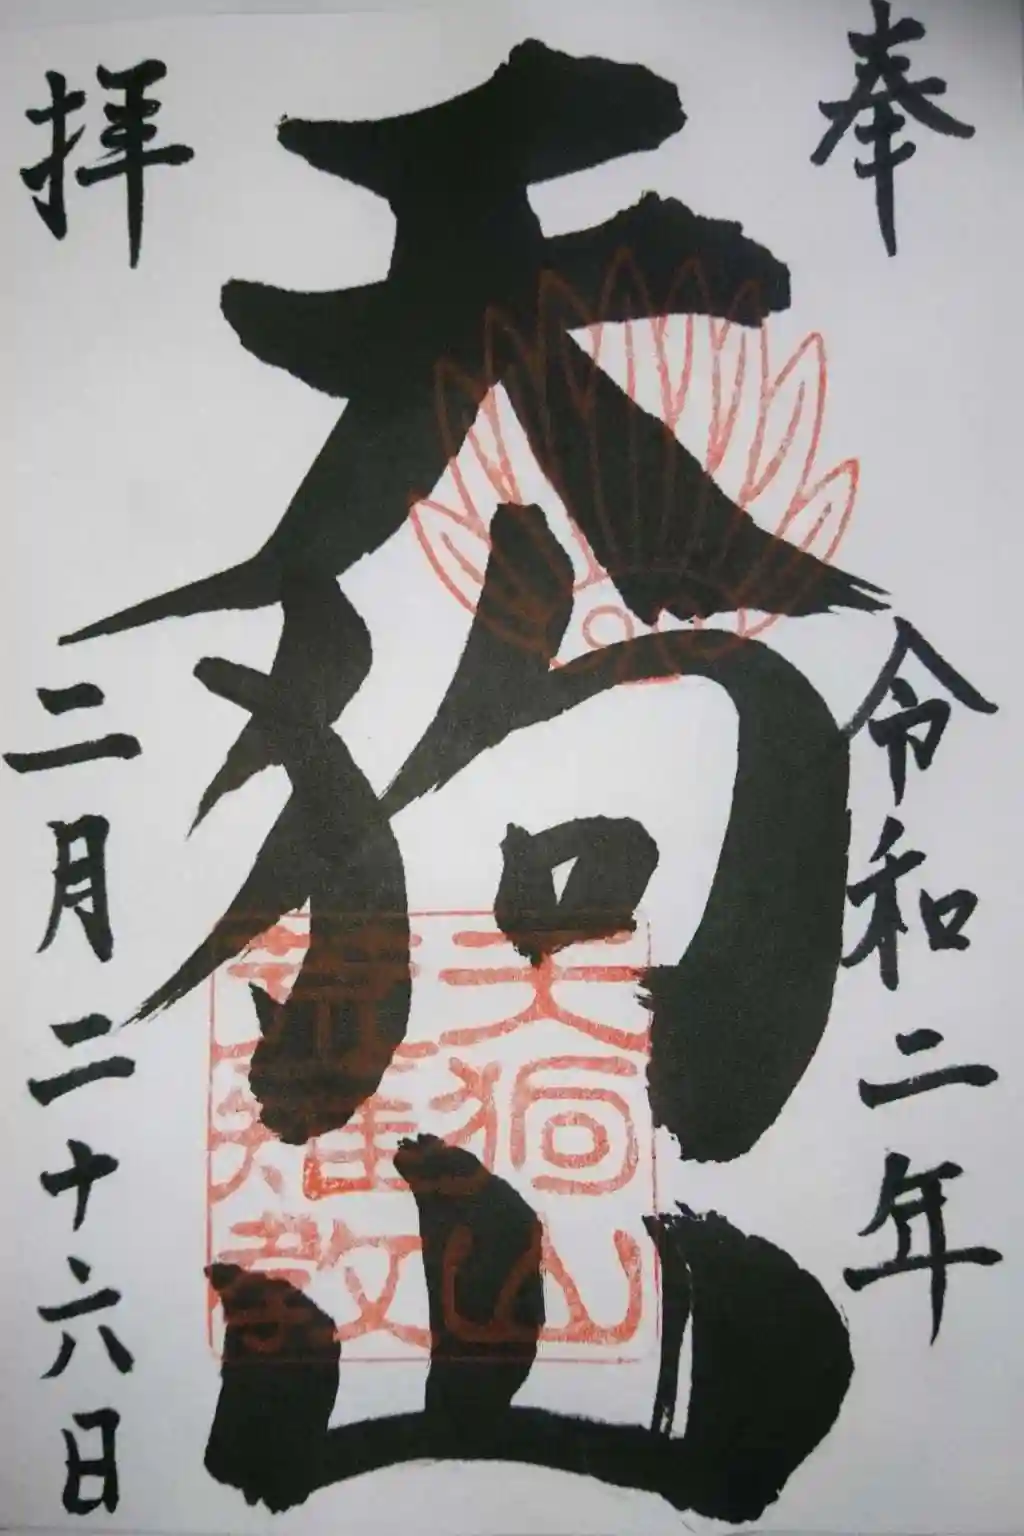 奉
令和二年
天狗山
拝
二月二十六日
天狗山
荒薙教